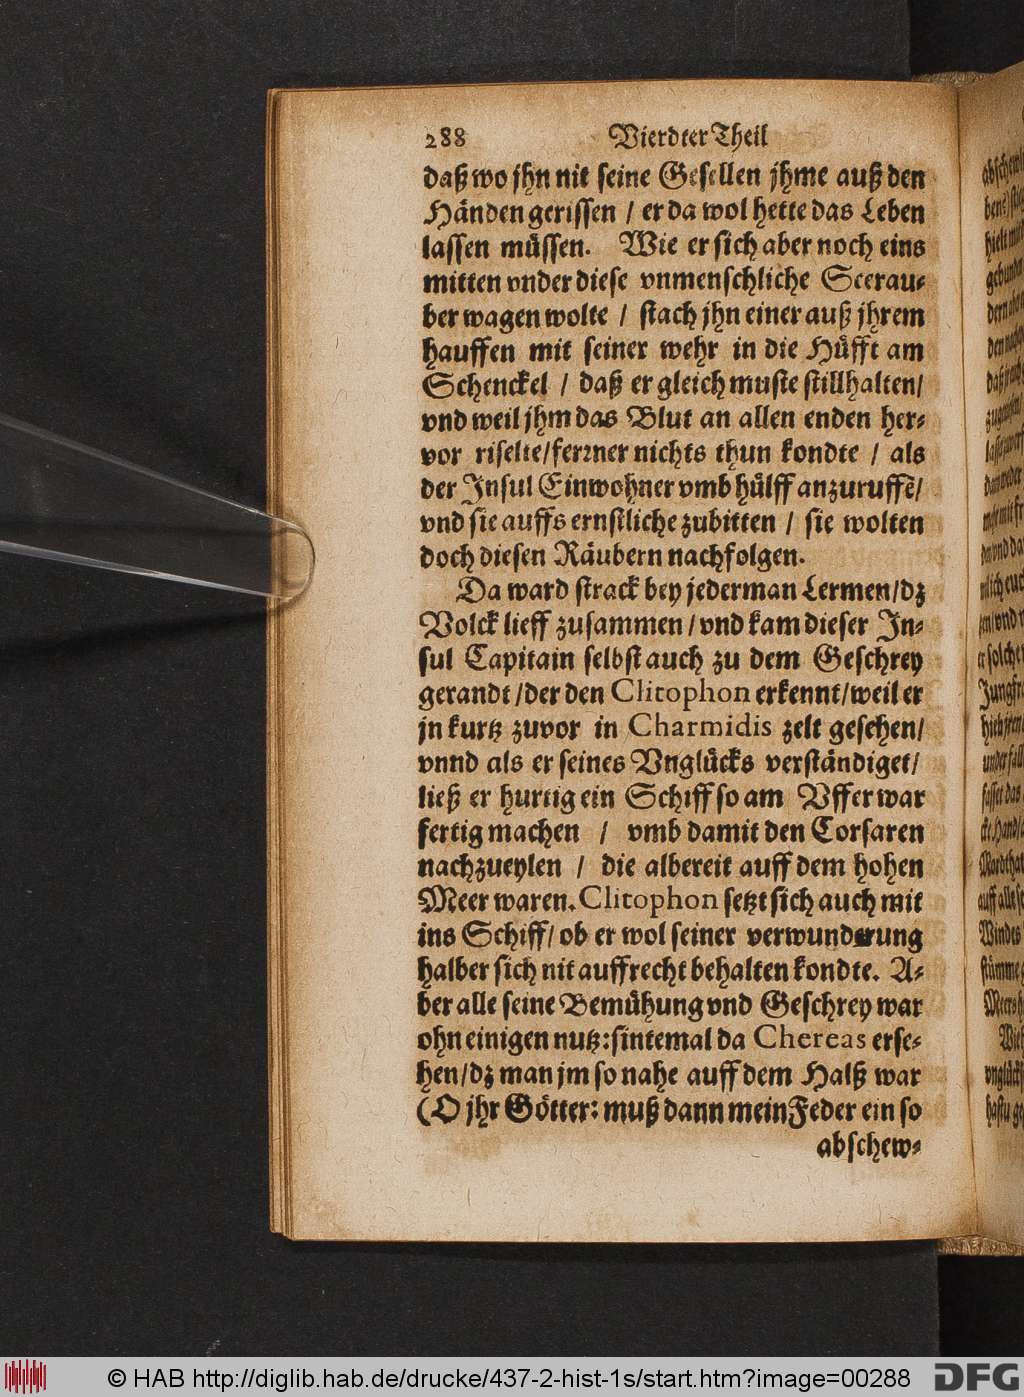 288 Vierdter Theil
daß wo jhn nit seine Gesellen jhme auß den
Händen gerissen / er da wol hette das Leben
lassen müssen. Wie er sich aber noch eins
mitten vnder diese vnmenschliche Seerau⸗
ber wagen wolte / stach jhn einer auß jhrem
hauffen mit seiner wehr in die Hüfft am
Schenckel / daß er gleich muste stillhalten/
vnd weil jhm das Blut an allen enden her⸗
vor riselte/ferrner nichts thun kondte / als
der Insul Einwohner vmb hülff anzuruffẽ/
vnd sie auffs ernstliche zubitten / sie wolten
doch diesen Räubern nachfolgen.
Da ward strack bey jederman Lermen/dz
Volck lieff zusammen/vnd kam dieser In⸗
sul Capitain selbst auch zu dem Geschrey
gerandt/der den Clitophon erkennt/weil er
jn kurtz zuvor in Charmidis zelt gesehen/
vnnd als er seines Vnglücks verständiget/
ließ er hurtig ein Schiff so am Vffer war
fertig machen / vmb damit den Corsaren
nachzueylen / die albereit auff dem hohen
Meer waren. Clitophon setzt sich auch mit
ins Schiff/ ob er wol seiner verwunderung
halber sich nit auffrecht behalten kondte. A⸗
ber alle seine Bemühung vnd Geschrey war
ohn einigen nutz:sintemal da Chereas erse⸗
hen/dz man jm so nahe auff dem Halß war
(O jhr Götter: muß dann mein Feder ein so
abschew⸗
© HAB http://diglib.hab.de/drucke/437-2-hist-1s/start.htm?image=00288
DFG